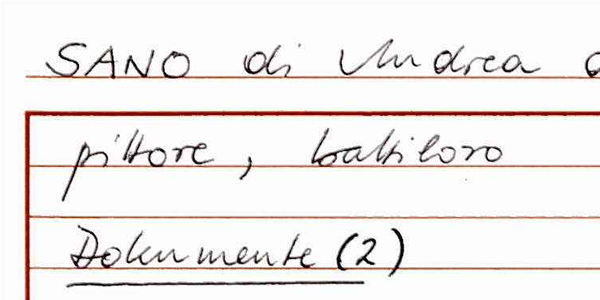 SANO di Andrea
pittore, battiloro
Dokumente (2)